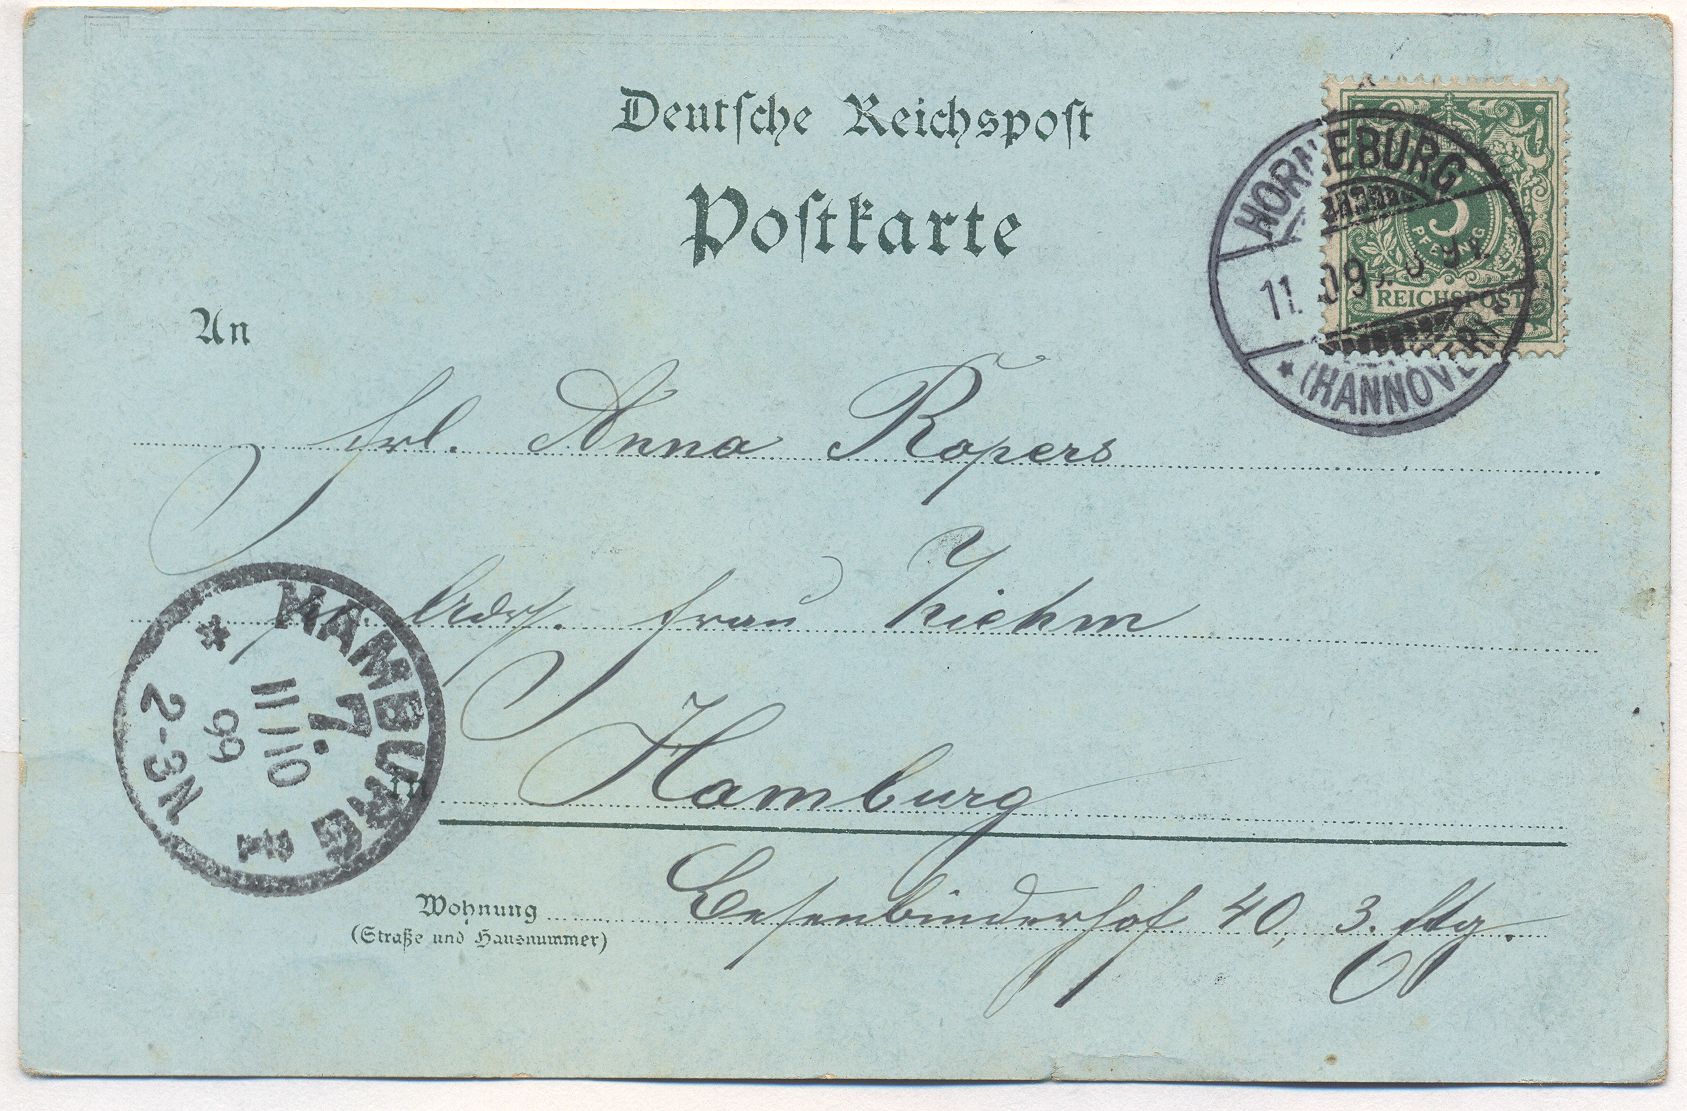 Deutsche Reichspost
Postkarte
HORNEBURG
(HANNOVER)
5
PFENNIG
REICHSPOST
An
Frl. Anna Ropers
Adr. Frau Ziehm
in Hamburg
Wohnung Besenbinderhof 40, 3. Etg.
(Straße und Hausnummer)
* HAMBURG 1
7.
11/10
99
2-3N